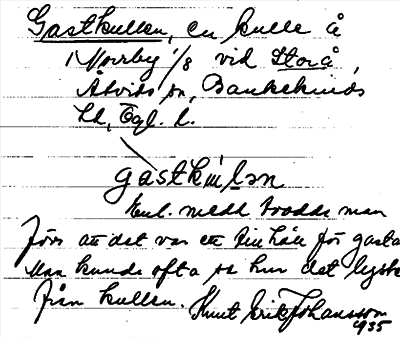 Gastkullen, en kulle å
1 Norrby 1/8 vid Storå,
Åtvids sn, Bankekinds
hd, Ögl. l.
gastkul̲ən
Enl. medd trodde man
förr att det var ett tillhåll för gasta
Man kunde ofta se hur det lyste
från kullen. Knut Erik Johansson
1935